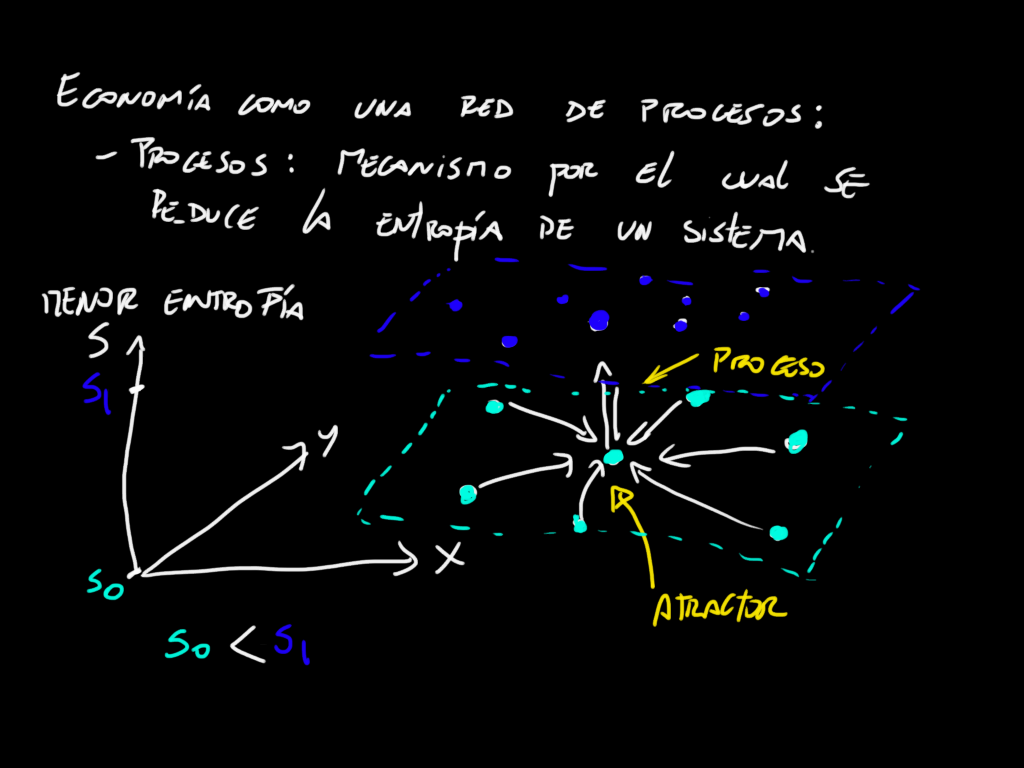 ECONOMÍA COMO UNA RED DE PROCESOS:
- PROCESOS: MECANISMO POR EL CUAL SE
REDUCE LA ENTROPÍA DE UN SISTEMA.
MENOR ENTROPÍA
S
S1
PROCESO
Y
X
S0
ATRACTOR
S0 < S1